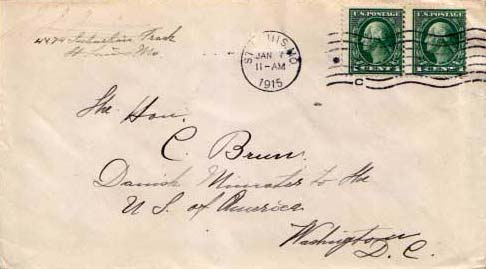 St. Louis Mo.
ST. LOUIS, MO.
JAN
11-AM
1915
U.S. POSTAGE
1 CENT 1
U.S. POSTAGE
1 CENT 1
C
The Hon.
C. Brun.
Danish Minister to the
U S. of America
Washington
D. C.